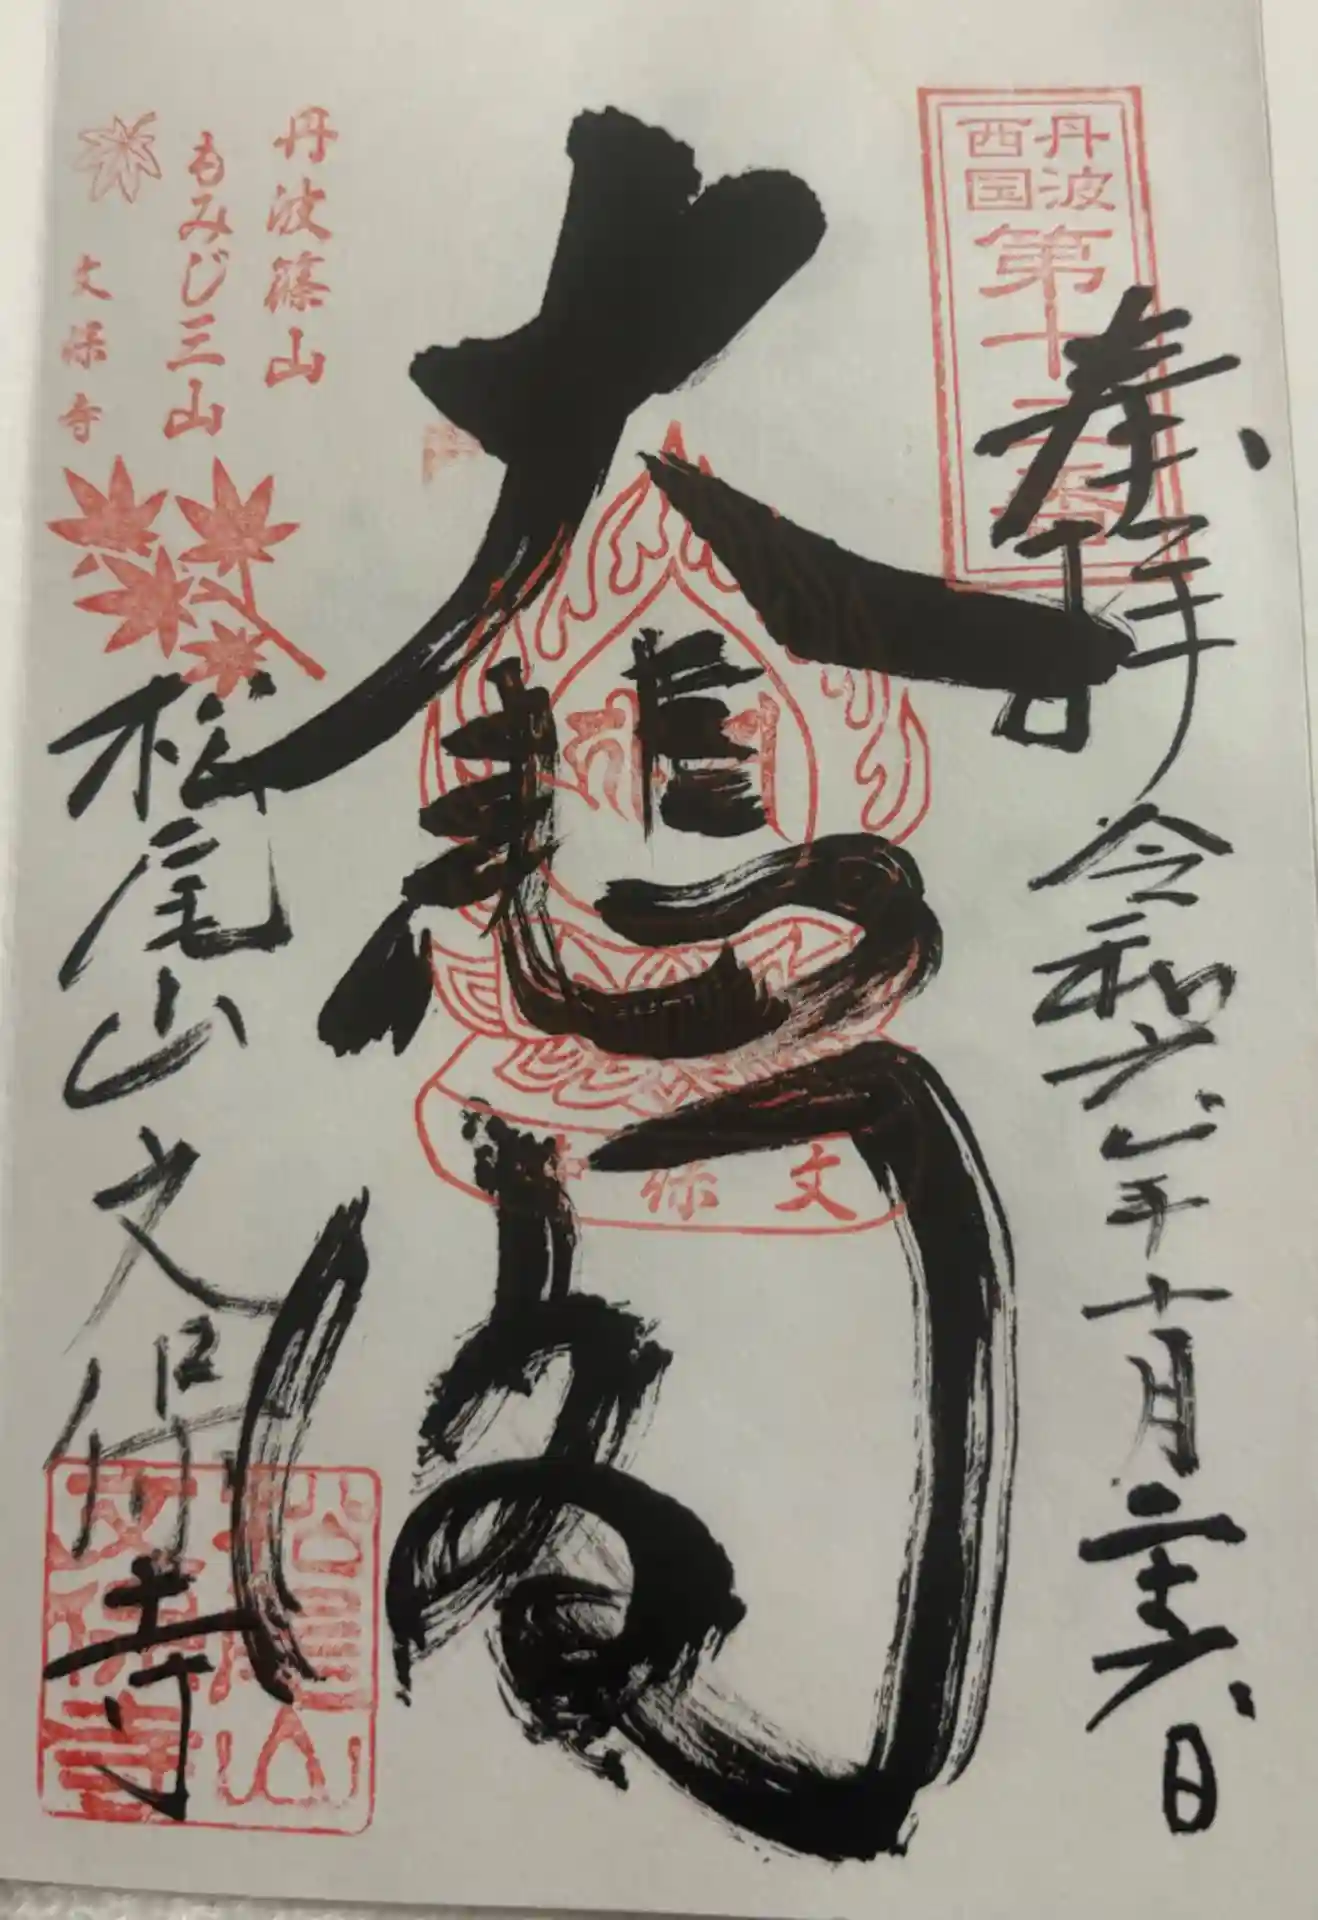 丹波
西国
第十
奉拝
令和六年十月二十六日
大悲閣
文保
丹波篠山
もみじ三山
文保寺
松尾山
文保寺
松尾山
文保寺